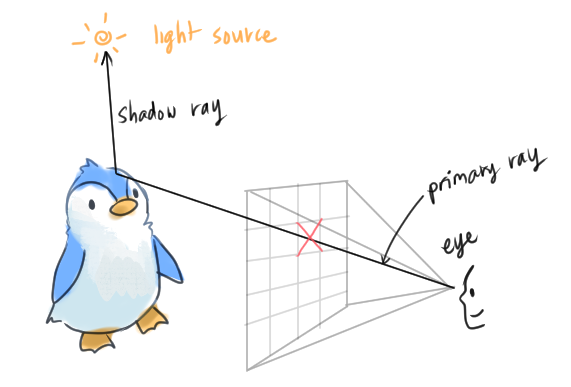 light source
shadow ray
primary ray
eye